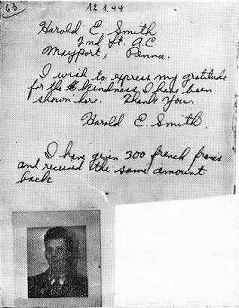 63 12.1.44
Harold E. Smith
2nd Lt. A.C.
Mayport, Penna.
I wish to express my gratitude
for the kindness I have been
shown here. Thank You.
Harold E. Smith.
I have given 300 french francs
and received the same amount
back